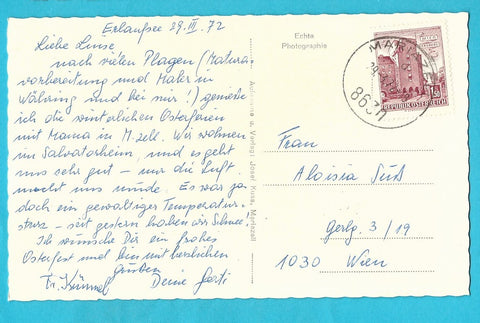 Erlaufsee 29. III. 72
Liebe Luise,
nach vielen Plagen (Matura-
vorbereitung und Maler in
Währing und bei mir!) genieße
ich die winterlichen Osterferien
mit Mama in M.zell. Wir wohnen
im Salvatorheim, und es geht
uns sehr gut – nur die Luft
macht uns müde. Es war ja
doch ein gewaltiger Temperatur-
sturz – seit gestern haben wir Schnee.
Ich wünsche Dir ein frohes
Osterfest und bin mit herzlichen
Grüßen
Deine
Echte
Photographie
Verlag: Josef Kuss, Mariazell
MARIAZELL
8630
REPUBLIK ÖSTERREICH
Frau
Aloisia Süß
3/19
1030 Wien